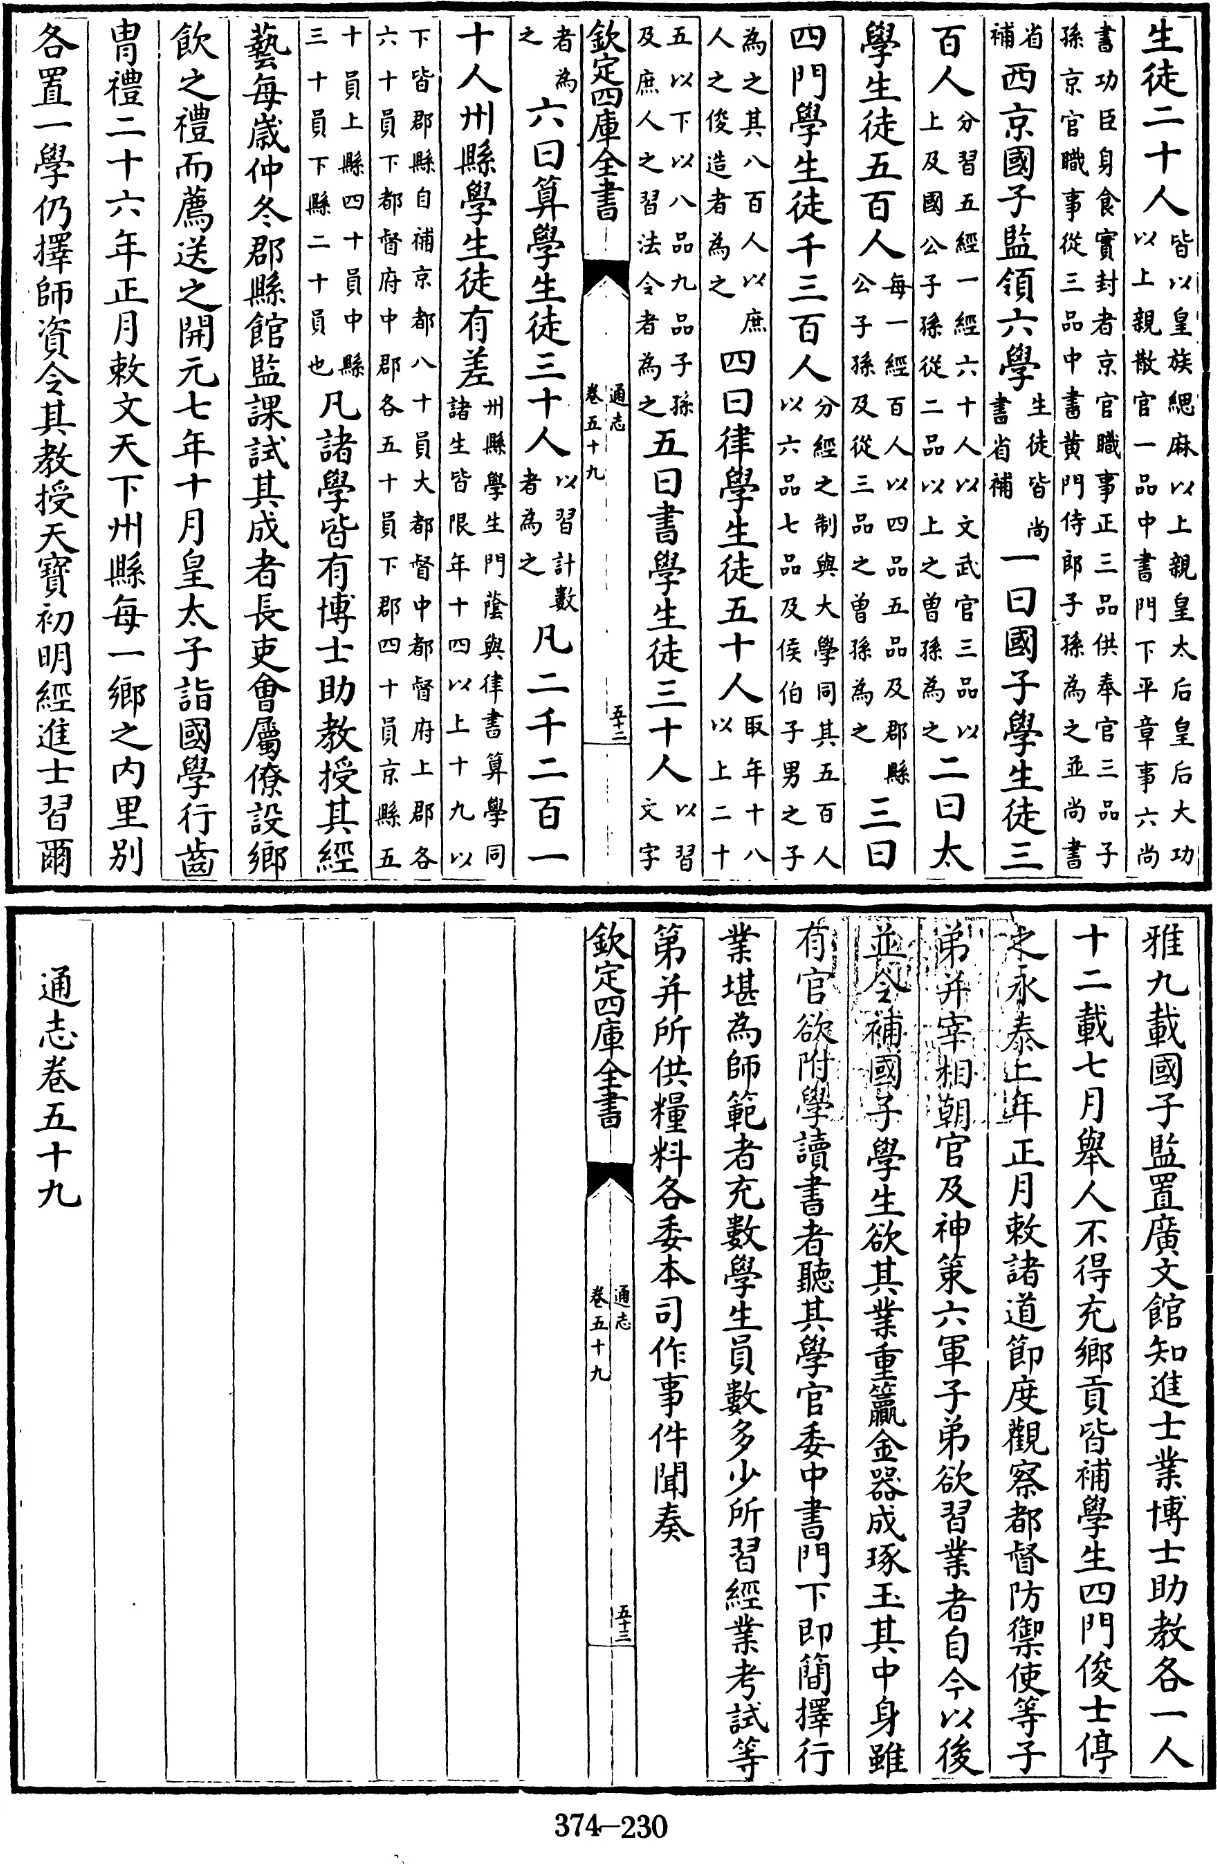 生徒二十人皆以皇族緦麻以上親皇太后皇后大功以上親散官一品中書門下平章事六尚
書功臣身食實封者京官職事正三品供奉官三品子孫京官職事從三品中書黄門侍郎子孫為之並尚書
省補西京國子監領六學生徒皆尚書省補一曰國子學生徒三
百人分習五經一經六十人以文武官三品以上及國公子孫從二品以上之曽孫為之二曰太
學生徒五百人每一經百人以四品五品及郡縣公子孫及從三品之曽孫為之三曰
四門學生徒千三百人分經之制與大學同其五百人以六品七品及侯伯子男之子
為之其八百人以庶人之俊造者為之四曰律學生徒五十人取年十八以上二十
五以下以八品九品子孫及庶人之習法令者為之五曰書學生徒三十人以習文字
欽定四庫全書 通志 卷五十九 五十二
者為之六曰算學生徒三十人以習計數者為之凡二千二百一
十人州縣學生徒有差州縣學生門蔭與律書算學同諸生皆限年十四以上十九以
下皆郡縣自補京都八十員大都督中都督府上郡各六十員下都督府中郡各五十員下郡四十員京縣五
十員上縣四十員中縣三十員下縣二十員也凡諸學皆有博士助教授其經
藝每歲仲冬郡縣館監課試其成者長吏會屬僚設鄉
飲之禮而薦送之開元七年十月皇太子詣國學行齒
胄禮二十六年正月敕文天下州縣每一鄉之內里別
各置一學仍擇師資令其教授天寶初明經進士習爾
雅九載國子監置廣文館知進士業博士助教各一人
十二載七月舉人不得充鄉貢皆補學生四門俊士停
之永泰二年正月敕諸道節度觀察都督防禦使等子
弟并宰相朝官及神策六軍子弟欲習業者自今以後
並令補國子學生欲其業重籯金器成琢玉其中身雖
有官欲附學讀書者聽其學官委中書門下即簡擇行
業堪為師範者充數學生員數多少所習經業考試等
第并所供糧料各委本司作事件聞奏
欽定四庫全書 通志 卷五十九 五十三
通志卷五十九
374-230